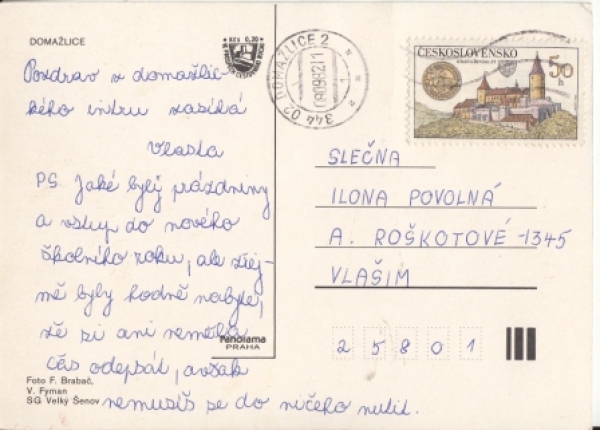 DOMAŽLICE
Kčs 0,20
Pozdrav z domažlic-
kého intru zasílá
Vlasta
PS. Jaké byly prázdniny
a vstup do nového
školního roku, ale zřej-
mě byly hodně nabyté,
že si ani neměla
čas odepsat, avšak
nemusíš se do ničeho nutit.
Panorama
PRAHA
Foto F. Brabač,
V. Fyman
SG Velký Šenov
344 02 DOMAŽLICE 2
ČESKOSLOVENSKO
50 h
SLEČNA
ILONA POVOLNÁ
A. ROŠKOTOVÉ 1345
VLAŠIM
25801